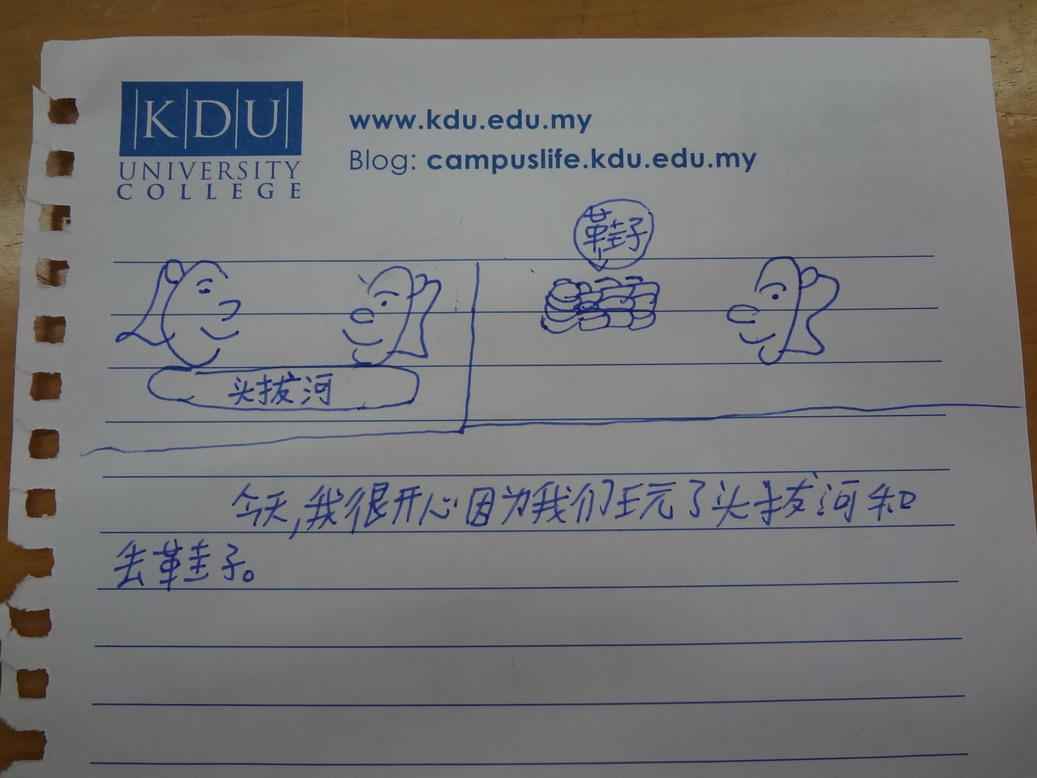 KDU
UNIVERSITY
COLLEGE
www.kdu.edu.my
Blog: campuslife.kdu.edu.my
鞋子
头拔河
今天,我很开心因为我们玩了头拔河和
丢鞋子。